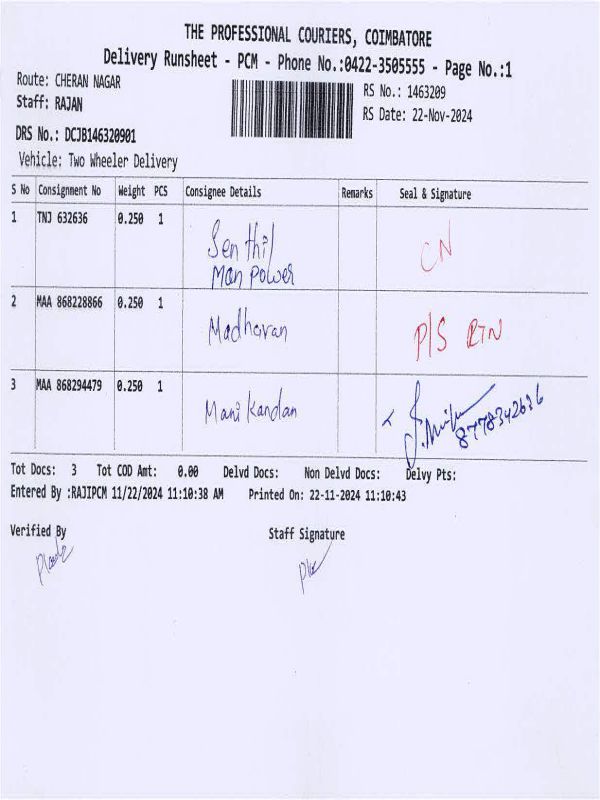 THE PROFESSIONAL COURIERS, COIMBATORE
Delivery Runsheet - PCM - Phone No.:0422-3505555 - Page No.:1
Route: CHERAN NAGAR
RS No.: 1463209
Staff: RAJAN
RS Date: 22-Nov-2024
DRS No.: DCJB146320901
Vehicle: Two Wheeler Delivery
S No Consignment No Weight PCS Consignee Details Remarks Seal & Signature
1 TNJ 632636 0.250 1 Senthil CN
Man power
2 MAA 868228866 0.250 1 Madhavan P/S RTN
3 MAA 868294479 0.250 1 Manikandan 8778342636
Tot Docs: 3 Tot COD Amt: 0.00 Delvd Docs: Non Delvd Docs: Delvy Pts:
Entered By :RAJIPCM 11/22/2024 11:10:38 AM Printed On: 22-11-2024 11:10:43
Verified By Staff Signature